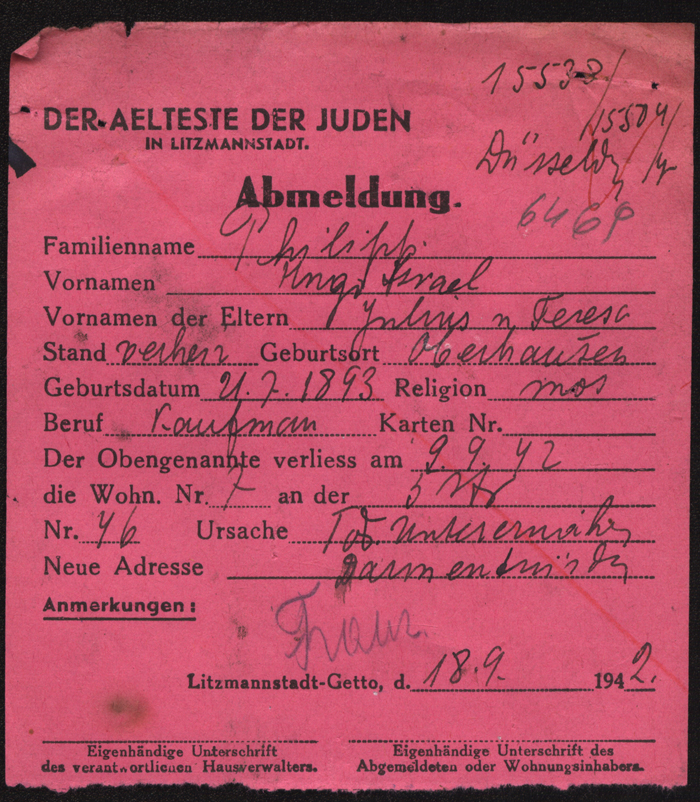 15538/
/15504/
DER AELTESTE DER JUDEN
IN LITZMANNSTADT.
Düsseldf
Abmeldung.
6469
Familienname Philipp.
Vornamen Hugo Israel
Vornamen der Eltern Julius u Feresa
Stand verheir Geburtsort Oberhausen
Geburtsdatum 21.7.1893 Religion mos
Beruf Kaufman Karten Nr.
Der Obengenannte verliess am 9.9.42
die Wohn. Nr. 7 an der
Nr. 46 Ursache Tod. Unterernähr
Neue Adresse Darmentzünd
Anmerkungen:
Franz.
Litzmannstadt-Getto, d. 18.9. 1942.
Eigenhändige Unterschrift
des verantwortlichen Hausverwalters.
Eigenhändige Unterschrift des
Abgemeldeten oder Wohnungsinhabers.